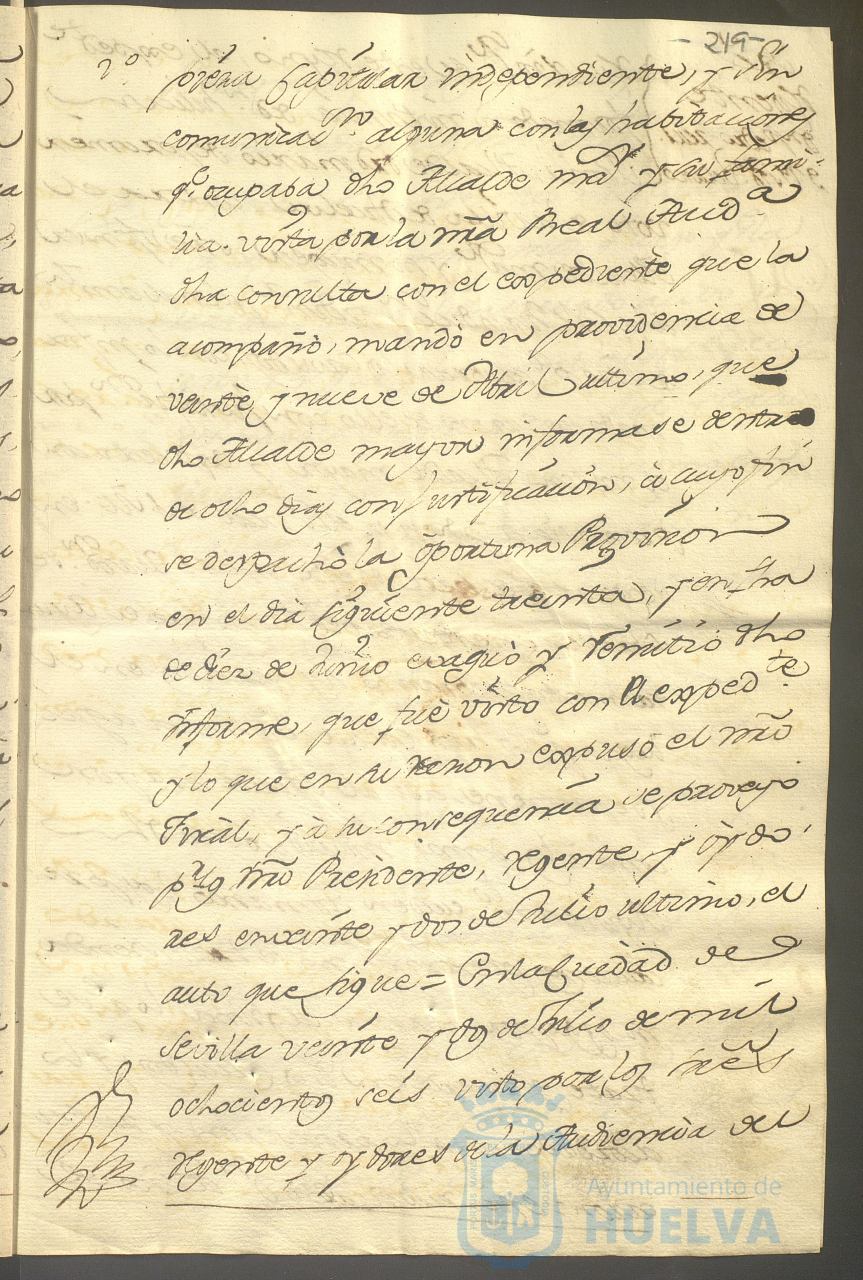 -219-
2º pieza Capitular independiente, y sin
comunicacⁿ alguna con las habitaciones
qᵉ ocupaba dho Alcalde mʳ y su fami-
lia. vista por la nrã Real Audª
dha consulta con el expediente que la
acompañó, mandó en providencia de
veinte y nueve de Abril ultimo, que
dho Alcalde mayor informase dentro
de ocho dias con justificación, à cuyo fin
se despachó la oportuna Provision
en el dia siguiente treinta, y en fha
de diez de Junio evaquó y remitió dho
informe, que fué visto con el expedᵗᵉ
y lo que en su razon expuso el nrõ
Fiscal, y à su consequencia se proveyo
pʳ los nrõ Presidente, regente y oydo-
res en veinte y dos de Julio ultimo, el
auto que sigue = En la Ciudad de
Sevilla veinte y dos de Julio de mil
ochocientos seis visto por los Señes
regente y oydores de la Audiencia de
Ayuntamiento de
HUELVA